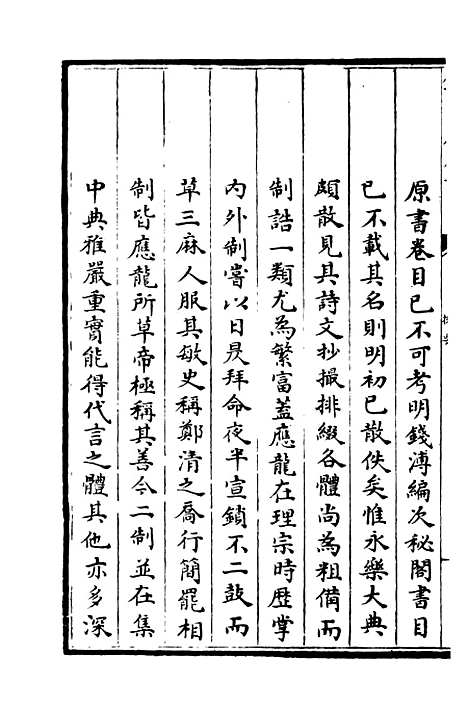 原書卷目已不可考明錢溥編次秘閣書目
已不載其名則明初已散佚矣惟永樂大典
頗散見其詩文抄撮排綴各體尚為粗備而
制誥一類尤為繁富蓋應龍在理宗時歴掌
内外制嘗以日昃拜命夜半宣鎖不二鼓而
草三麻人服其敏史稱鄭清之喬行簡罷相
制皆應龍所草帝極稱其善今二制並在集
中典雅嚴重實能得代言之體其他亦多深